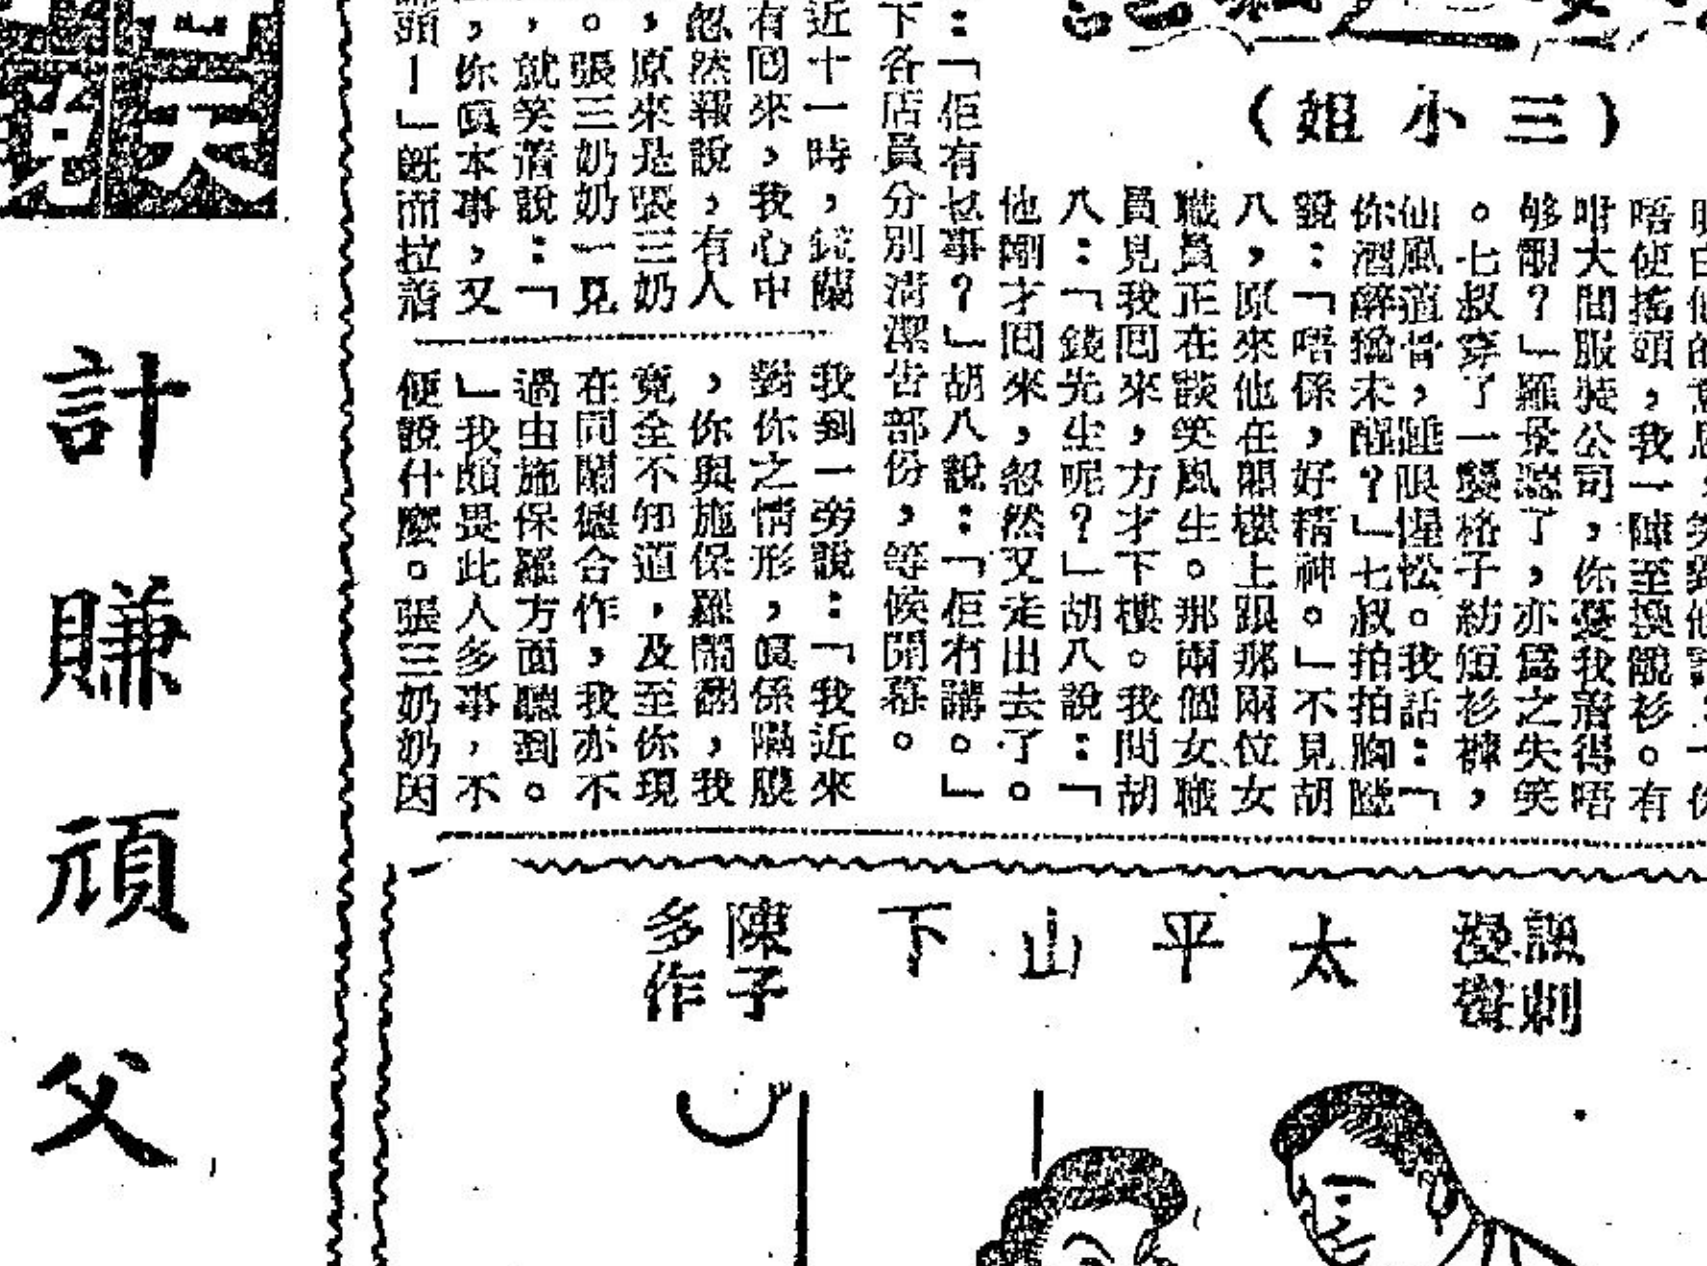 三小姐
唔使搖頭，我一陣至換靚衫。有
咁大間服裝公司，你憂我着得唔
够靚？」羅景了，亦爲之失笑
。七叔穿了一襲格子紡短衫褲，
仙風道骨，睡眼惺忪。我話：「
你酒醉猶未醒？」七叔拍拍胸膛
說：「唔係，好精神。」不見胡
八，原來他在閣樓上跟那兩位女
職員正在談笑風生。那兩個女職
員見我囘來，方才下樓。我問胡
八：「錢先生呢？」胡八說：「
他剛才囘來，忽然又走出去了。
：「佢有乜事？」胡八說：「佢冇講。」
下各店員分別清潔部份，等候開幕。
近十一時，錢蘭
有囘來，我心中
忽然報說，有人
，原來是張三奶
。張三奶奶一見
，就笑着說：「
，你眞本事，又
頭！」旣而拉着
我到一旁說：「我近來
對你之情形，眞係隔膜
，你與施保羅鬧翻，我
竟全不知道，及至你現
在同關德合作，我亦不
過由施保羅方面聽到。
」我頗畏此人多事，不
便說什麼。張三奶奶因
計賺頑父
諷刺漫畫
太平山下
陳子多作